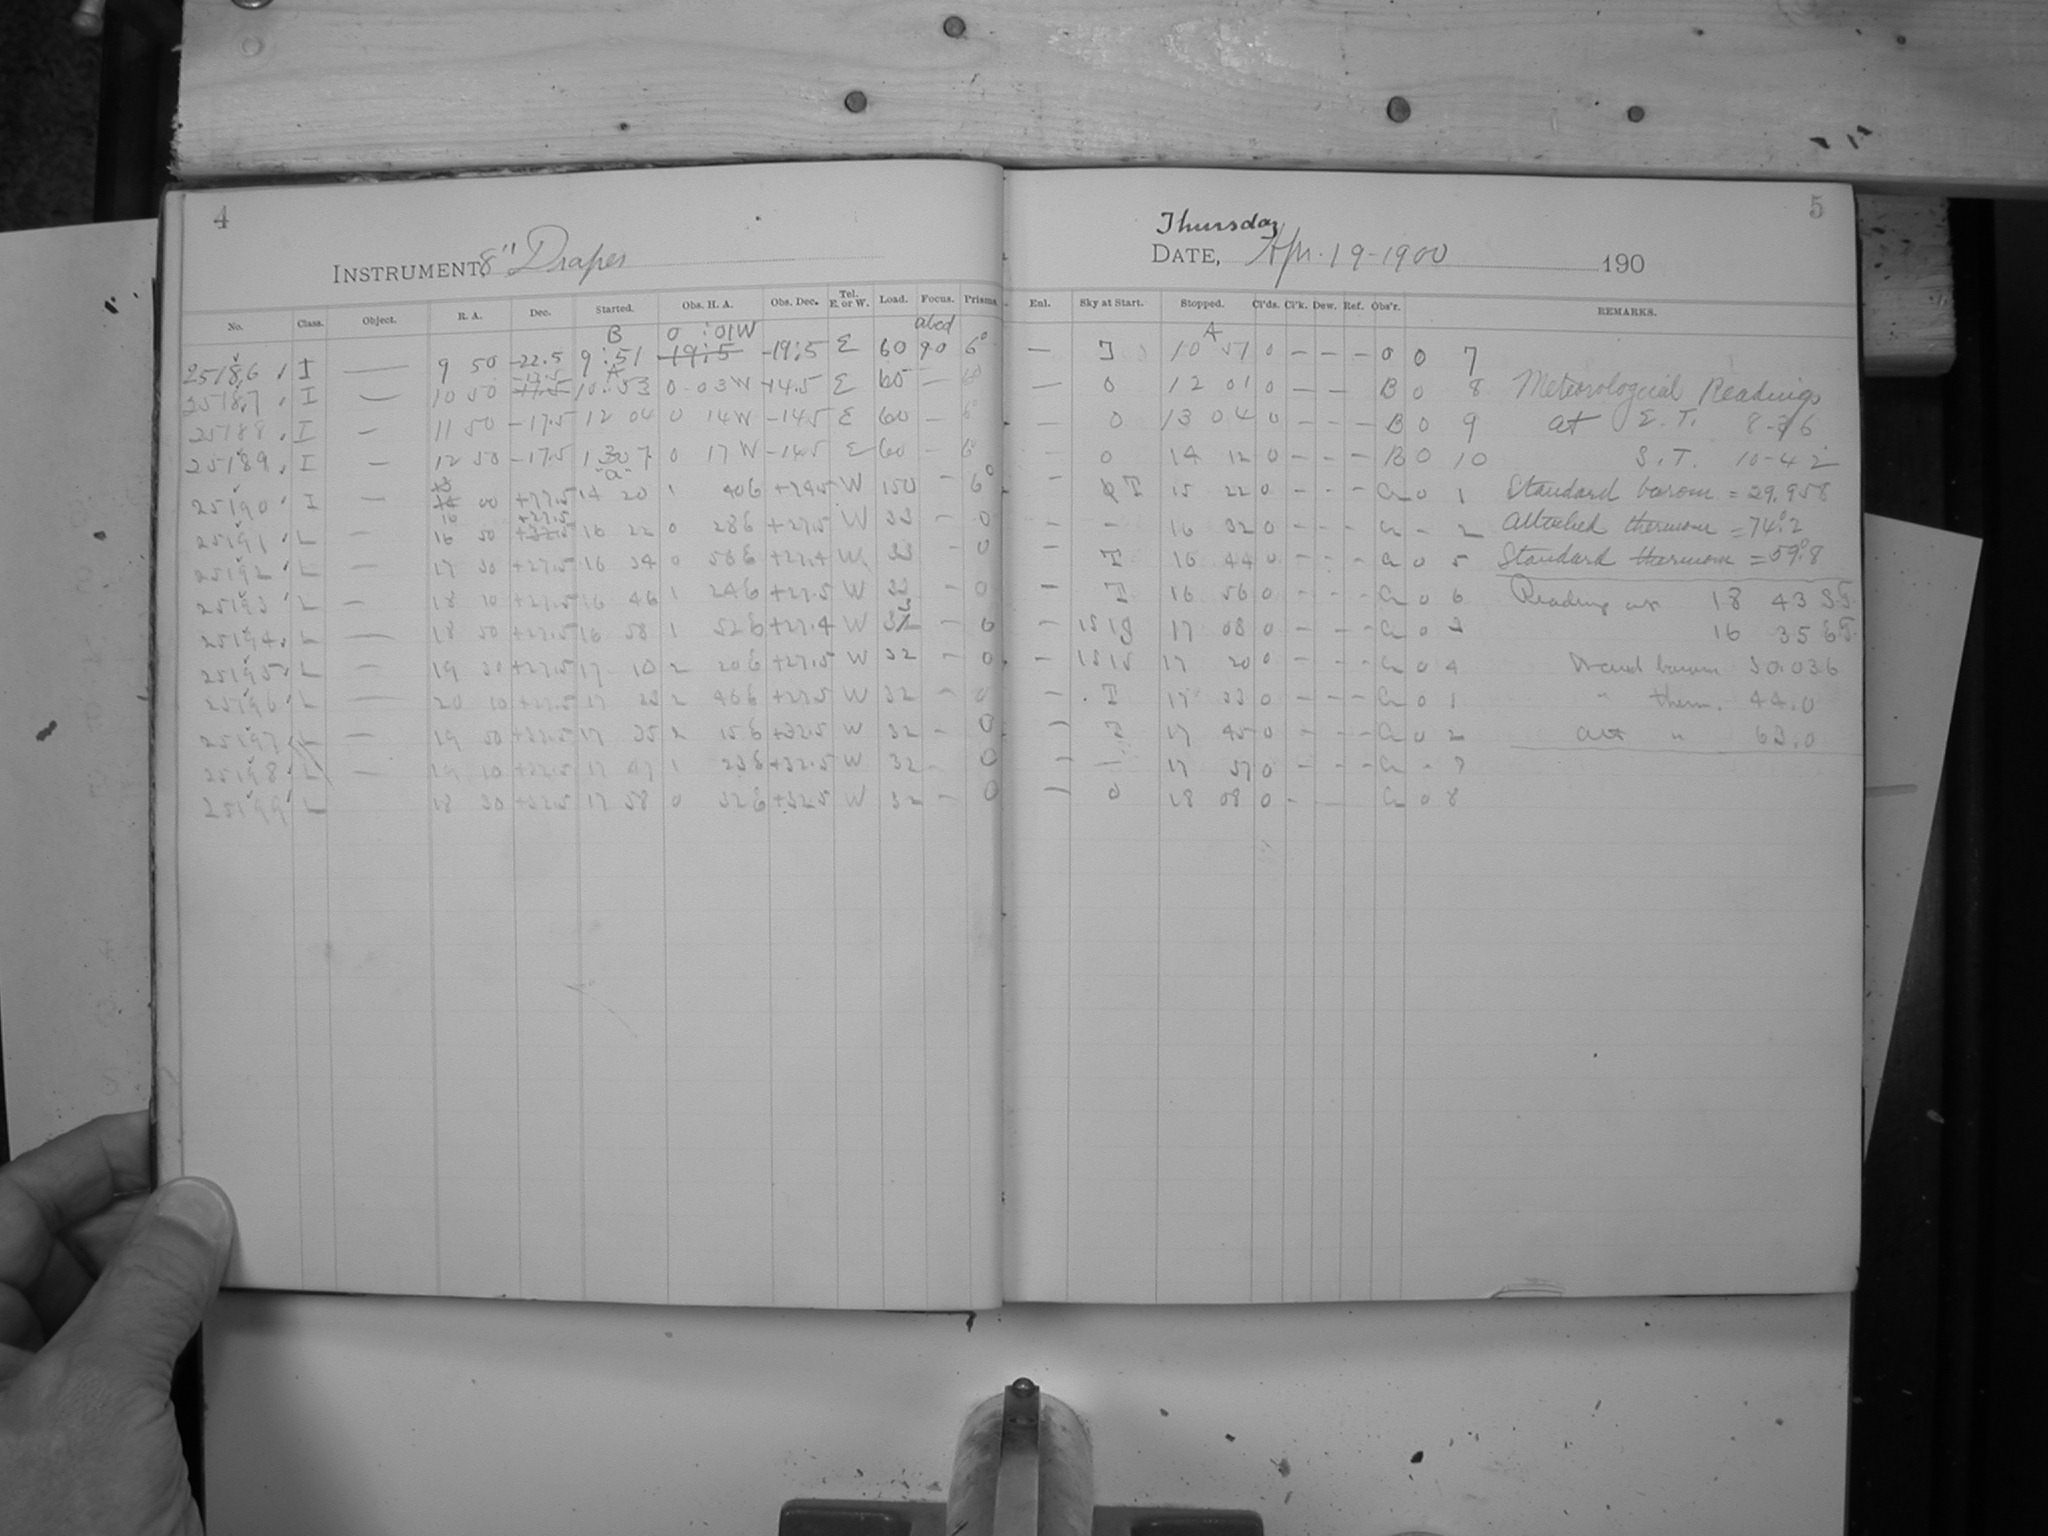 4
INSTRUMENT, 8" Draper
No. Class. Object. R. A. Dec. Started. Obs. H. A. Obs. Dec. Tel. E. or W. Load. Focus. Prisms
B 0 :01W abcd
25186 I — 9 50 -22.5 9:51 -19:5 -19:5 E 60 90 6°
25187 I — 10 50 -17.5 10:53 0 03W -14.5 E 65 — 6°
25188 I — 11 50 -17.5 12 04 0 14W -14.5 E 60 — 6°
25189 I — 12 50 -17.5 1307 0 17W -14.5 E 60 — 6°
25190 I — 00 14 20 1 40E W 150 - 6°
25191 L — 16 50 +27.5 16 22 0 28E +27.5 W 33 - 0
25192 L — 17 30 +27.5 16 34 0 56E +27.4 W 33 - 0
25193 L — 18 10 +27.5 16 46 1 24E +27.5 W 33 - 0
25194 L — 18 50 +27.5 16 58 1 52E +27.4 W - 0
25195 L — 19 30 +27.5 17 10 2 20E +27.5 W 32 - 0
25196 L — 20 10 +27.5 17 23 2 46E +27.5 W 32 - 0
25197 L — 19 50 +32.5 17 35 2 15E +32.5 W 32 - 0
25198 L — 19 10 +32.5 17 47 1 23E +32.5 W 32 - 0
25199 L 18 30 +32.5 17 58 0 32E +32.5 W 32 - 0
5
Thursday
DATE, Apr. 19-1900 190
Enl. Sky at Start. Stopped. Cl'ds. Cl'k. Dew. Ref. Obs'r. REMARKS.
A
— 10 51 0 - - - 0 0 7
— 0 12 01 0 - - B 0 8 Meteorological Readings
— 0 13 04 0 - - - B 0 9 at E.T.
0 14 12 0 - - - B 0 10 S.T. 10-42
- T 15 22 0 - - - 0 1 Standard barom = 29.958
- - 16 32 0 - - - - 2 Attached thermom = 74°.2
- T 16 44 0 - - - 0 5 Standard thermom = 59°.8
- T 16 56 0 - - - 0 6 Reading at 18 43 S.T.
- 17 08 0 - - - 0 16 35 E.T.
- 1515 17 20 0 - - - 0 4 Stand barom 30.036
- T 17 33 0 - - - 0 1 " therm. 44.0
- 17 45 0 - - - 0 2 Att " 63.0
- - 17 57 0 - - - -
- 0 18 08 0 - - 0 8